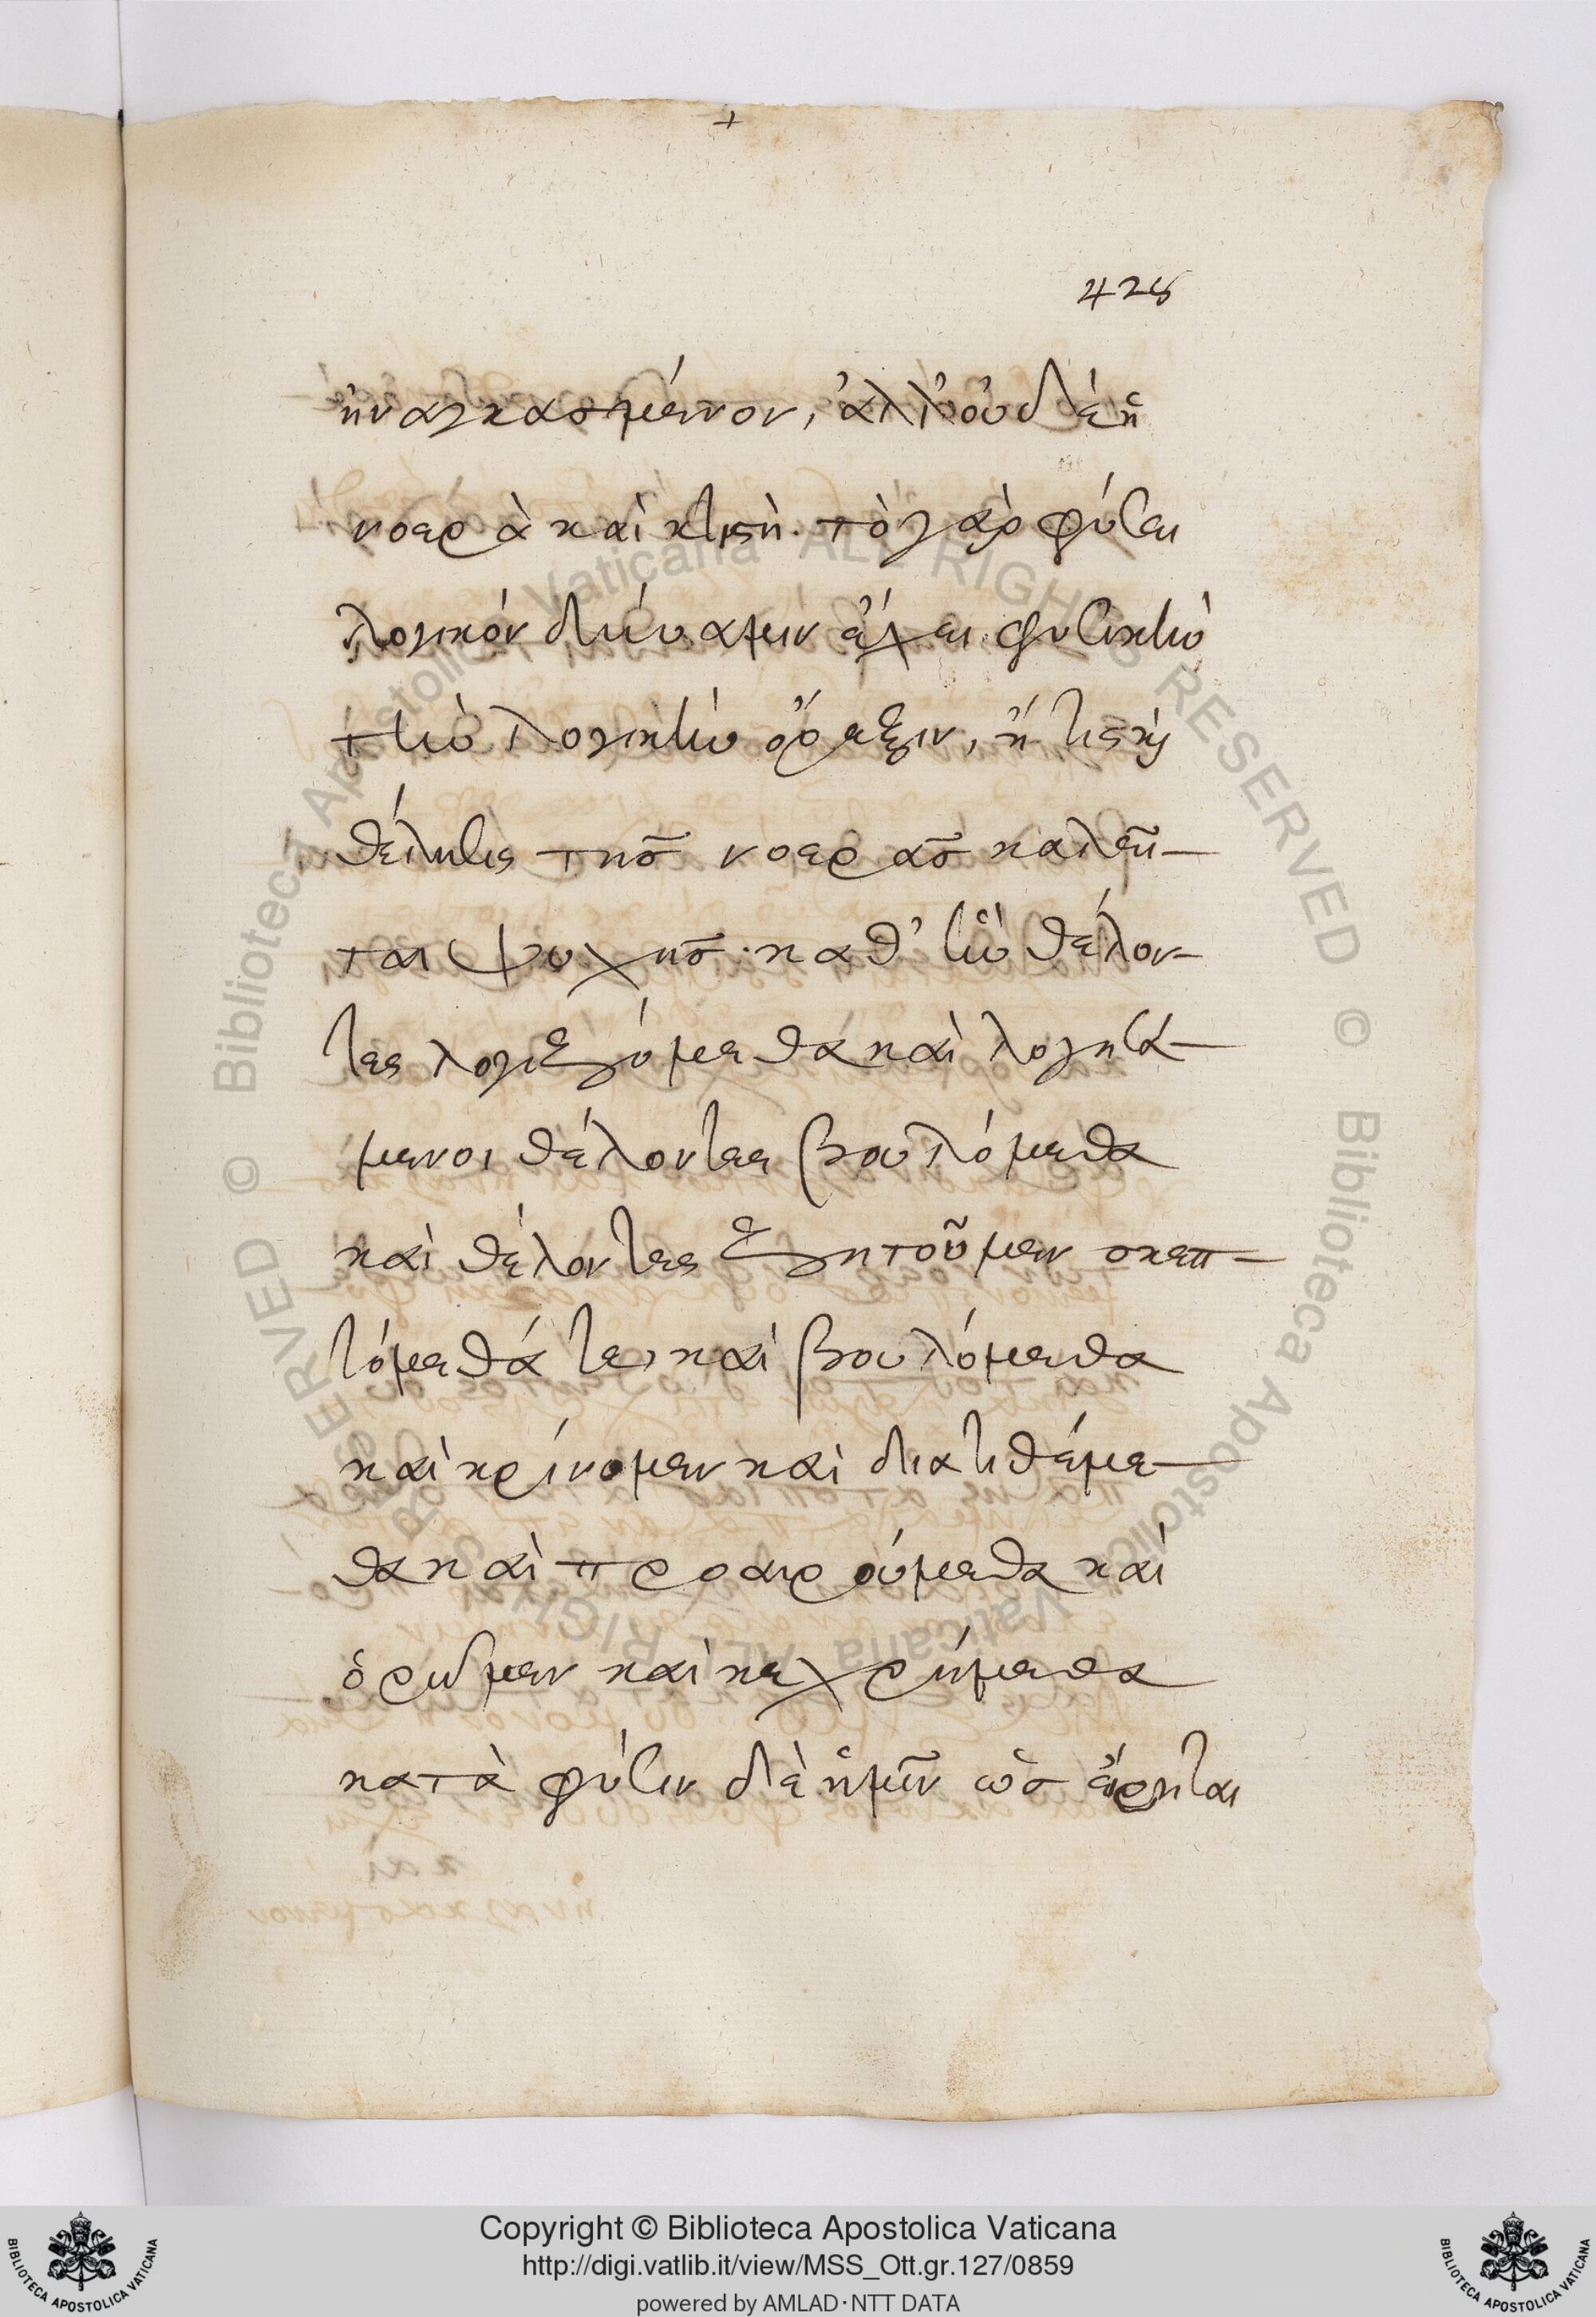 +
428
ἠναγκασμένον, ἀλλ' οὐδὲ ἡ
νοερὰ καὶ κτιστὴ. τὸ γὰρ φύσει
λογικόν δύναμιν ἔχει φυσικὴν
τὴν λογικὴν ὄρεξιν, ἥτις καὶ
θέλησις τῆς νοερᾶς καλεῖ-
ται ψυχῆς. καθ' ἣν θέλον-
τες λογιζόμεθα καὶ λογησά-
μενοι θέλοντες βουλόμεθα
καὶ θέλοντες ζητοῦμεν σκεπ-
τόμεθά τε, καὶ βουλόμεθα
καὶ κρίνομεν καὶ διατιθέμε-
θα καὶ προαιρούμεθα καὶ
ὁρῶμεν καὶ κεχρήμεθα
κατὰ φύσιν δὲ ἡμῖν ὡς εἴρηται
© Biblioteca Apostolica Vaticana ALL RIGHTS RESERVED © Biblioteca Apostolica Vaticana ALL RIGHTS RESERVED
Copyright © Biblioteca Apostolica Vaticana
http://digi.vatlib.it/view/MSS_Ott.gr.127/0859
powered by AMLAD·NTT DATA
BIBLIOTECA APOSTOLICA VATICANA
BIBLIOTECA APOSTOLICA VATICANA